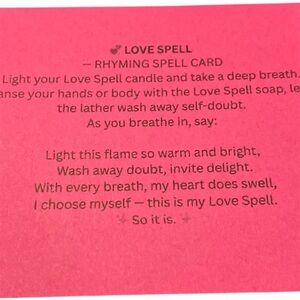 💕 LOVE SPELL
— RHYMING SPELL CARD
Light your Love Spell candle and take a deep breath.
anse your hands or body with the Love Spell soap, le
the lather wash away self-doubt.
As you breathe in, say:
Light this flame so warm and bright,
Wash away doubt, invite delight.
With every breath, my heart does swell,
I choose myself — this is my Love Spell.
✨ So it is. ✨